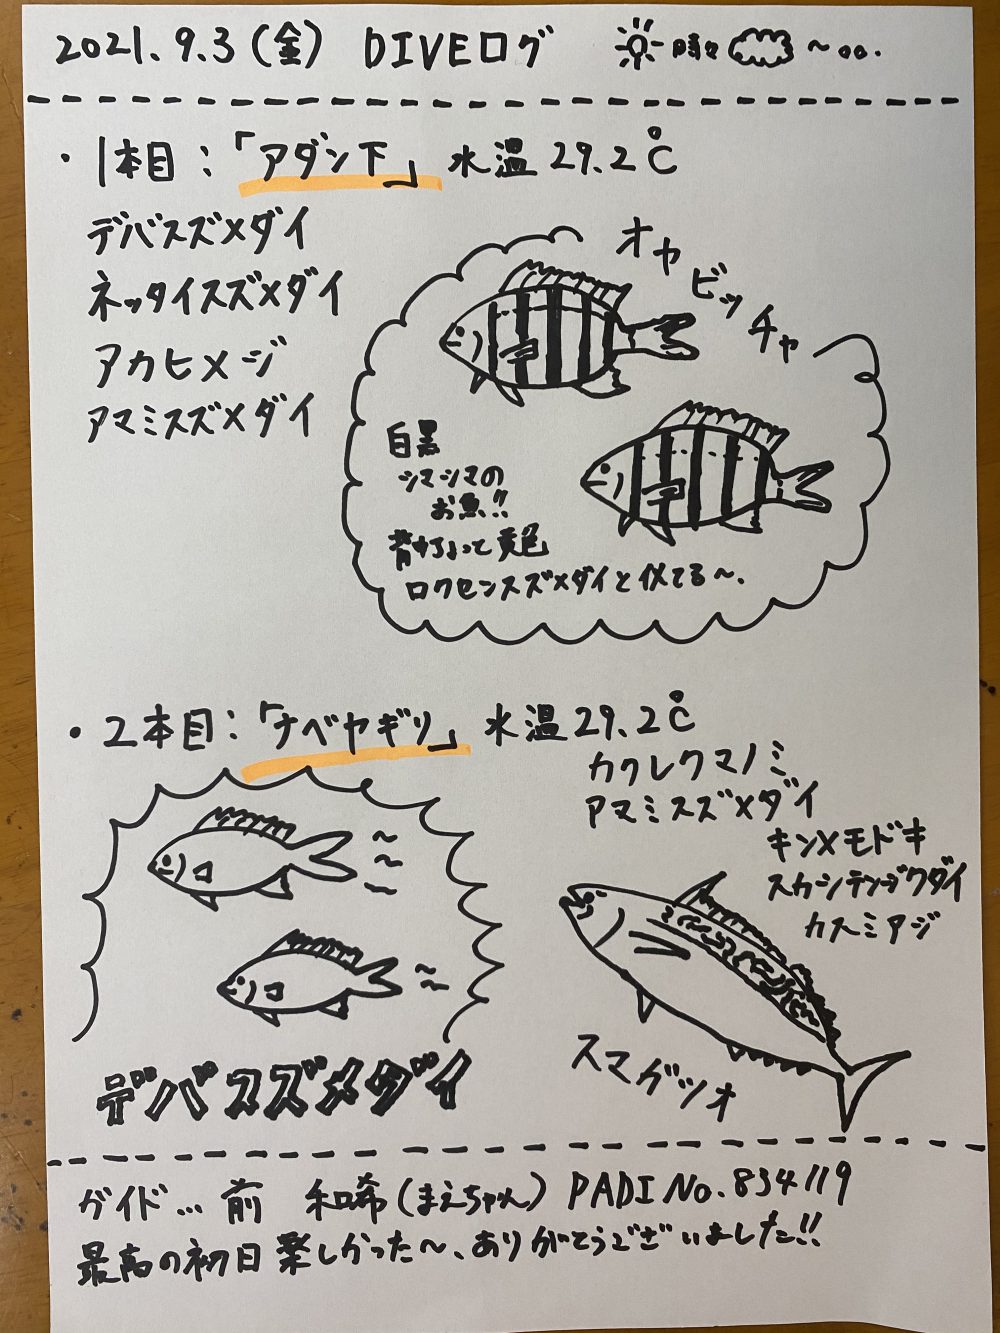 2021.9.3(金) DIVEログ 時々 ～
・1本目：「アダン下」 水温29.2℃
デバスズメダイ
ネッタイスズメダイ
アカヒメジ
アマミスズメダイ
オヤビッチャ
白黒
シマシマの
お魚!!
背中ちょっと黄色
ロクセンスズメダイと似てる～.
・2本目：「ナベヤギリ」 水温29.2℃
カクレクマノミ
アマミスズメダイ
キンメモドキ
スカシテンジクダイ
カスミアジ
デバスズメダイ
スマガツオ
ガイド…前 和希(まえちゃん) PADI No.834119
最高の初日楽しかった～、ありがとうございました!!